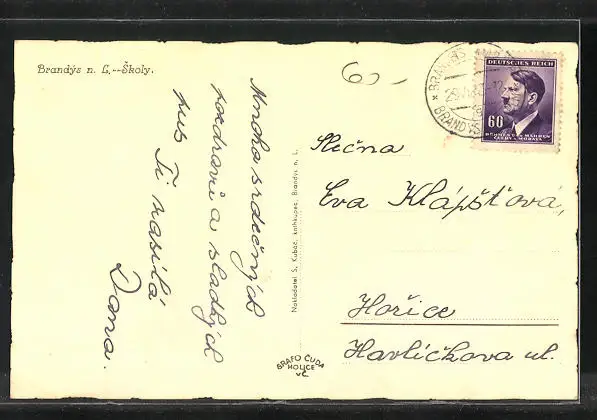 Brandýs n. L.--Školy.
60 -
Mnoho srdečných
pozdravů a sladkých
pus Ti zasílá
Dana.
Nakladatel S. Kubeč, knihkupec, Brandýs n. L.
GRAFO ČUDA
HOLICE
v Č.
BRANDÝS
BRANDÝS
DEUTSCHES REICH
60
BÖHMEN UND MÄHREN
ČECHY A MORAVA
Slečna
Eva Klápšťová,
Hořice
Havlíčkova ul.